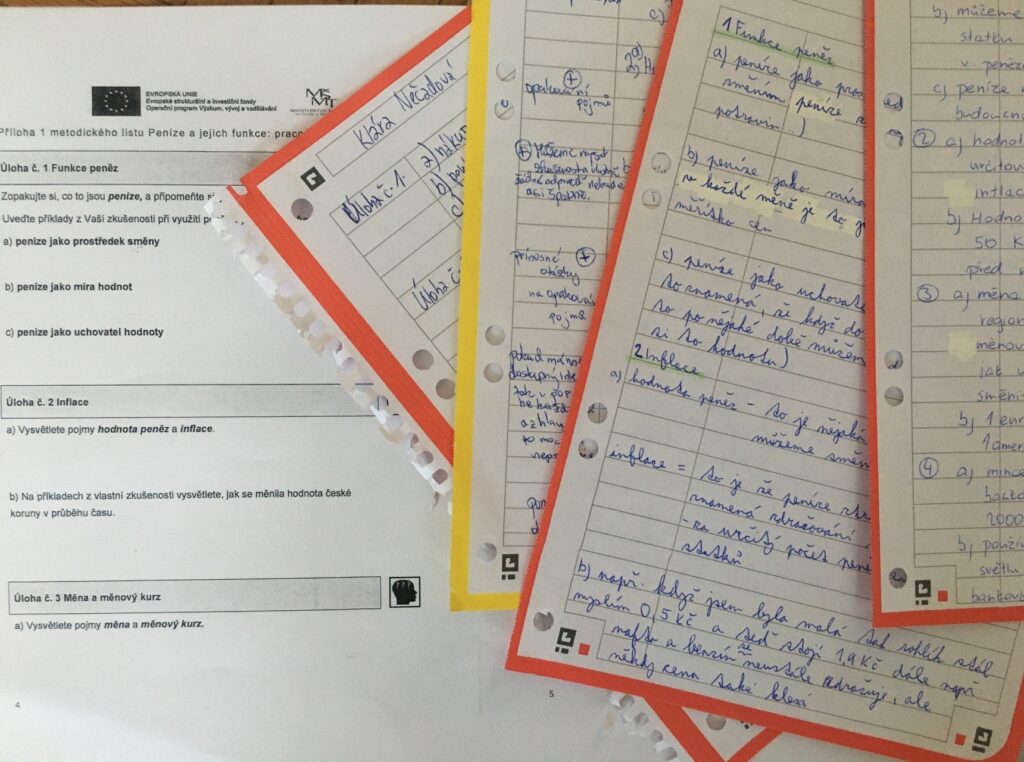 EVROPSKÁ UNIE
Evropské strukturální a investiční fondy
Operační program Výzkum, vývoj a vzdělávání
Příloha 1 metodického listu Peníze a jejich funkce: praco
Úloha č. 1 Funkce peněz
Zopakujte si, co to jsou peníze, a připomeňte si
Uveďte příklady z Vaší zkušenosti při využití pe
a) peníze jako prostředek směny
b) peníze jako míra hodnot
c) peníze jako uchovatel hodnoty
Úloha č. 2 Inflace
a) Vysvětlete pojmy hodnota peněz a inflace.
b) Na příkladech z vlastní zkušenosti vysvětlete, jak se měnila hodnota české
koruny v průběhu času.
Úloha č. 3 Měna a měnový kurz
a) Vysvětlete pojmy měna a měnový kurz.
4
5
Klára Nečadová
Úloha č. 1. a) nákup
b)
c)
Úloha č.
c)
opakování
pojmů
přínosné
otázky
na opaková
pojmů
pokud má
1 Funkce peněz
a) peníze jako pros
směním peníze z
potravin..)
b) peníze jako míra
v každé měně je to j
měřítko cen
c) peníze jako uchovate
to znamená, že když do
to po nějaké době můžem
si to hodnotu)
2 Inflace
a) hodnota peněz - to je nějaká
můžeme směn
inflace = to je že peníze ztr
znamená zdražování
- za určitý počet peně
statků
b) např. když jsem byla malá tak rohlík stál
myslím 0,5 Kč a teď stojí 1,9 Kč dále např.
nafta a benzín se neustále zdražuje, ale
někdy cena také klesá
b) můžeme
statku
v peněz
c) peníze
budoucna
2 a) hodnot
určitou
inflac
b) Hodno
50 K
před
3 a) měna
region
měnov
jak
směni
b) 1 eur
1 amer
4 a) mince
banko
2000
b) použív
světlu
bankov